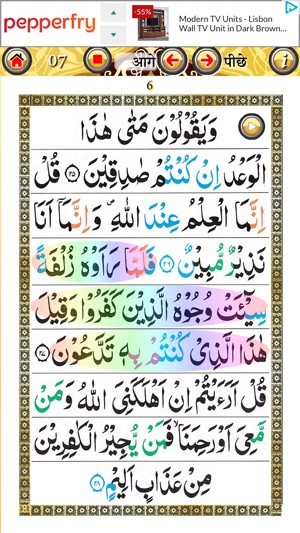 pepperfry
-55%
Modern TV Units - Lisbon
Wall TV Unit in Dark Brown...
07 आगे पीछे
6
وَيَقُوْلُوْنَ مَتٰى هٰذَا
الْوَعْدُ اِنْ كُنْتُمْ صٰدِقِيْنَ ﴿۲۵﴾ قُلْ
اِنَّمَا الْعِلْمُ عِنْدَ اللّٰهِ ۪ وَاِنَّمَاۤ اَنَا
نَذِيْرٌ مُّبِيْنٌ ﴿۲۶﴾ فَلَمَّا رَاَوْهُ زُلْفَةً
سِيْٓـَٔتْ وُجُوْهُ الَّذِيْنَ كَفَرُوْا وَقِيْلَ
هٰذَا الَّذِيْ كُنْتُمْ بِهٖ تَدَّعُوْنَ ﴿۲۷﴾
قُلْ اَرَءَيْتُمْ اِنْ اَهْلَكَنِيَ اللّٰهُ وَمَنْ
مَّعِيَ اَوْ رَحِمَنَا ۙ فَمَنْ يُّجِيْرُ الْكٰفِرِيْنَ
مِنْ عَذَابٍ اَلِيْمٍ ﴿۲۸﴾